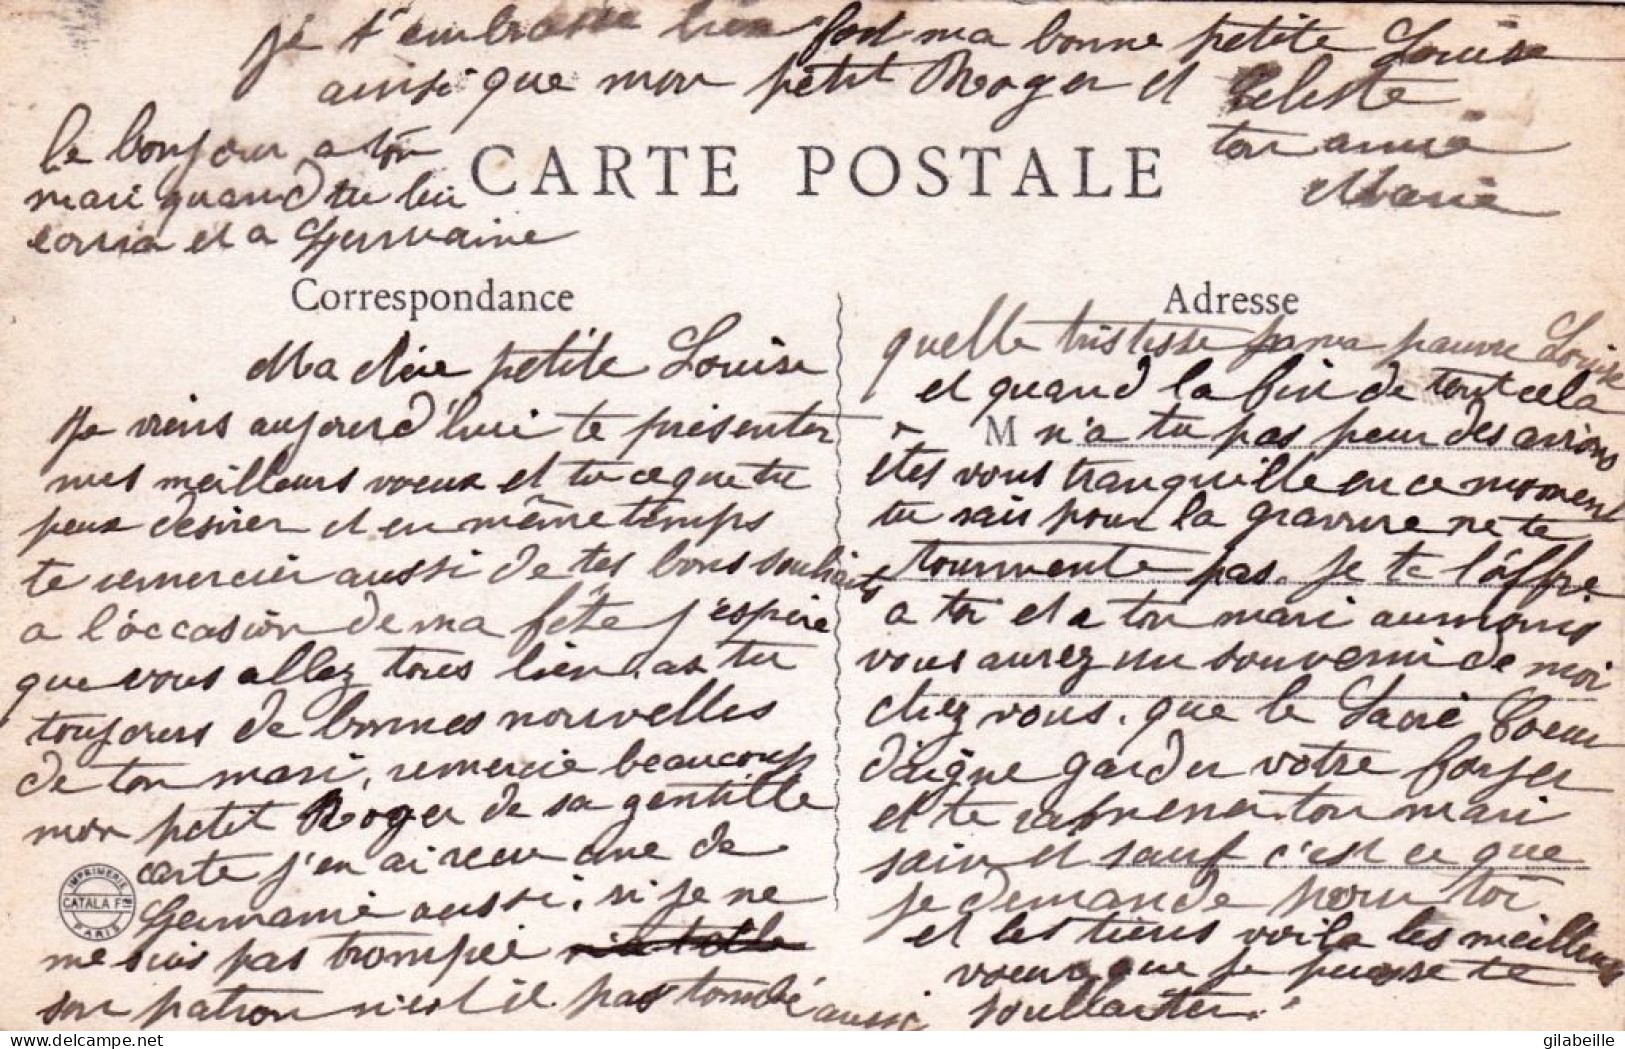 je t'embrasse bien fort ma bonne petite Louise
ainsi que mon petit Roger et Celeste
ton amie
Marie
le bonjour a ton
mari quand tu lui
et a Germaine
CARTE POSTALE
Correspondance
Ma chère petite Louise
Je viens aujourd'hui te présenter
mes meilleurs voeux et tu ce que tu
peux desirer et en même temps
te remercier aussi de tes bons souhaits
a l'occasion de ma fête j'espère
que vous allez tous bien. as tu
toujours de bonnes nouvelles
de ton mari, remercie beaucoup
mon petit Roger de sa gentille
carte j'en ai recu une de
Germaine aussi, si je ne
me suis pas trompée
son patron n'est il pas tombé aussi
IMPRIMERIE
CATALA Fres
PARIS
Adresse
quelle tristesse ma pauvre Louise
et quand la fin de tout cela
M n'a tu pas peur des avions
êtes vous tranquille en ce moment
tu sais pour la gravure ne te
tourmente pas. je te l'offre
a toi et a ton mari au moins
vous aurez un souvenir de moi
chez vous. que le Sacré Coeur
daigne garder votre foyer
et te ramener ton mari
sain et sauf c'est ce que
je demande pour toi
et les tiens voila les meilleurs
voeux que je puisse te
souhaiter.
delcampe.net
gilabeille